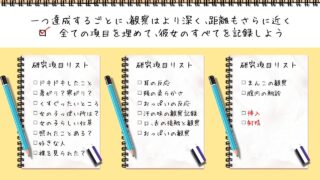 一つ達成するごとに、観察はより深く、距離もさらに近く
全ての項目を埋めて、彼女のすべてを記録しよう
研究項目リスト
ドキドキしたこと
暑がり?寒がり?
くすぐったいところ
女の子っぽい所は?
女の子らしい仕草
照れたことある?
好きな人
裸を見られた?
研究項目リスト
耳の反応
頬の柔らかさ
おっぱいの反応
汗の味の観察記録
口、舌の接触と観察
おっぱいの観察
研究項目リスト
まんこの観察
膣内の触診
挿入
射精